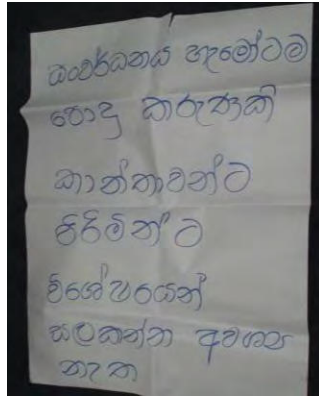 සංවර්ධනය හැමෝටම
පොදු කරුණකි
කාන්තාවන්ට
පිරිමින්ට
විශේෂයෙන්
සලකන්න අවශ්‍ය
නැත